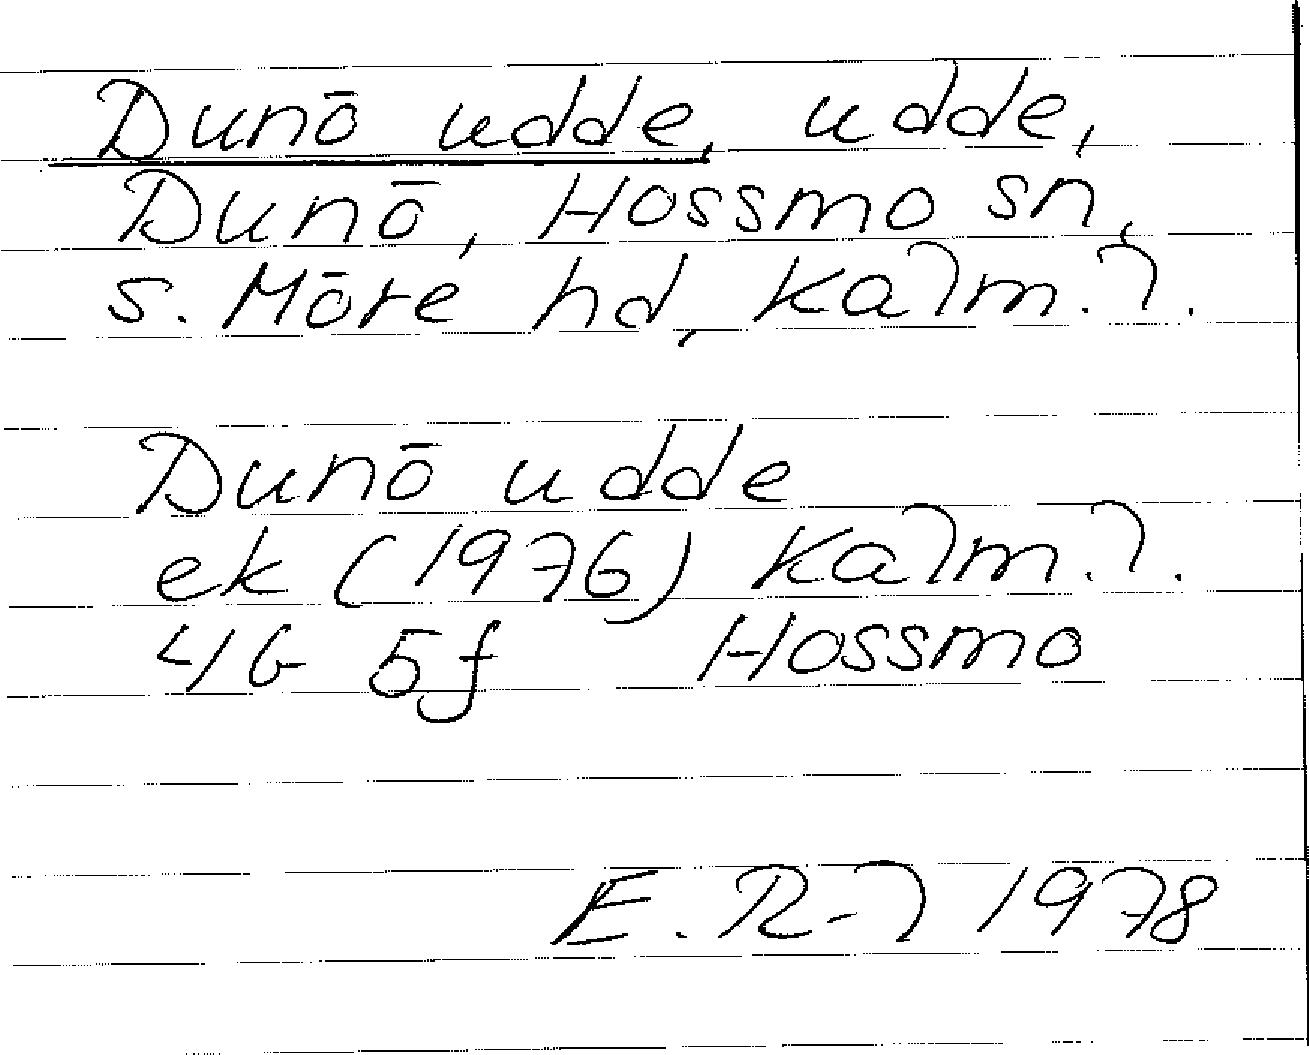 Dunö udde, udde,
Dunö, Hossmo sn,
S. Möre hd, Kalm. l.
Dunö udde
ek (1976) Kalm. l.
4G 5f Hossmo
E. R-l 1978